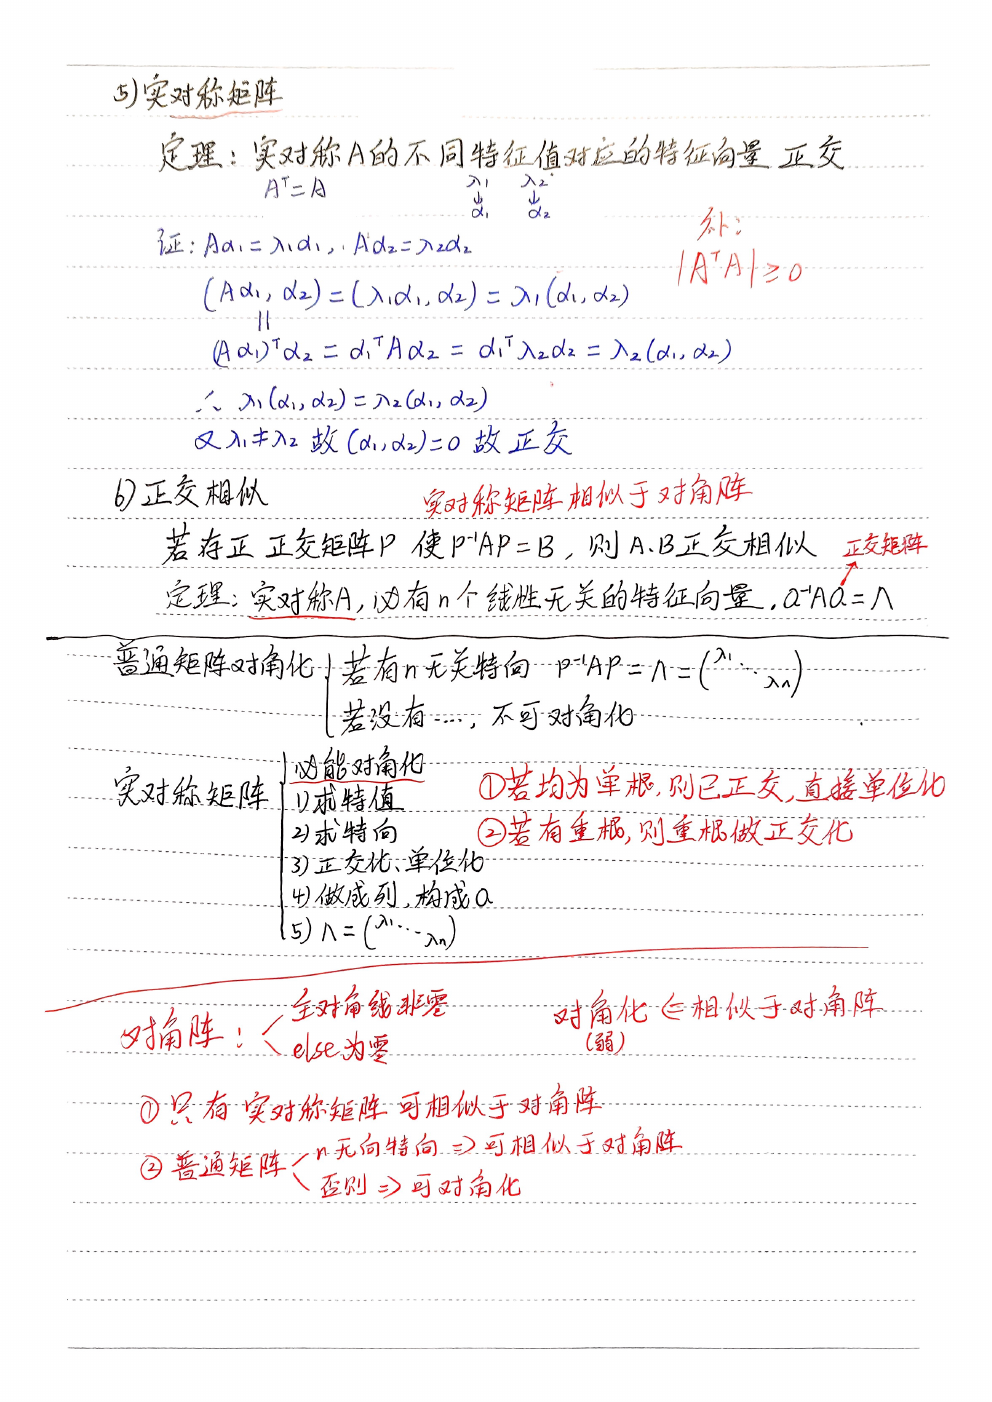 5) 实对称矩阵
定理: 实对称A的不同特征值对应的特征向量 正交
Aᵀ=A λ₁ λ₂
↓ ↓
α₁ α₂
补:
|AᵀA|≥0
证: Aα₁=λ₁α₁, Aα₂=λ₂α₂
(Aα₁, α₂)=(λ₁α₁, α₂)=λ₁(α₁, α₂)
||
(Aα₁)ᵀα₂=α₁ᵀAα₂=α₁ᵀλ₂α₂=λ₂(α₁, α₂)
∴ λ₁(α₁, α₂)=λ₂(α₁, α₂)
又λ₁≠λ₂ 故(α₁, α₂)=0 故 正交
6) 正交相似 实对称矩阵相似于对角阵
若存正 正交矩阵P 使P⁻¹AP=B, 则A、B正交相似 正交矩阵
定理: 实对称A, 必有n个线性无关的特征向量. Q⁻¹AQ=Λ
普通矩阵对角化 若有n无关特向 P⁻¹AP=Λ=(λ₁⋱λn)
若没有……, 不可对角化
实对称矩阵 必能对角化
1) 求特值 ①若均为单根, 则已正交, 直接单位化
2) 求特向 ②若有重根, 则重根做正交化
3) 正交化、单位化
4) 做成列, 构成Q
5) Λ=(λ₁⋱λn)
对角阵: 主对角线非零
else为零
对角化⇐相似于对角阵
(弱)
① 只有 实对称矩阵 可相似于对角阵
② 普通矩阵 n无向特向 ⇒可相似于对角阵
否则⇒可对角化